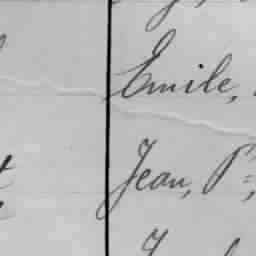 Emile,
Jean, P